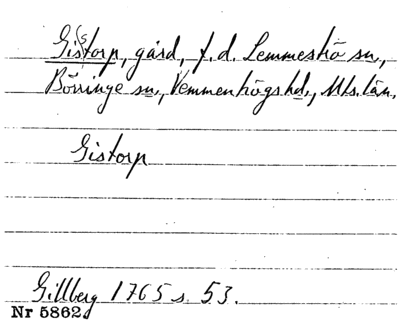 Gi(s)storp, gård, f.d. Lemmeströ sn,
Börringe sn, Vemmenhögs hd., Mls. län.
Gistorp
Gillberg 1765 s. 53.
Nr 5862